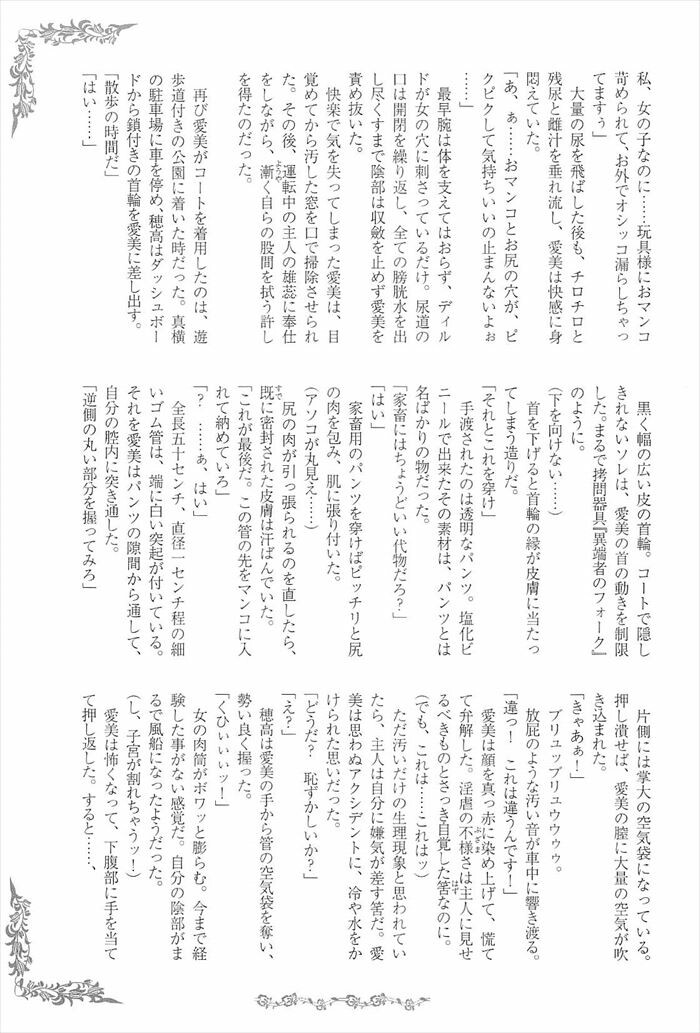 私、女の子なのに……玩具様におマンコ
苛められて、お外でオシッコ漏らしちゃっ
てますぅ」
大量の尿を飛ばした後も、チロチロと
残尿と雌汁を垂れ流し、愛美は快感に身
悶えていた。
「あ、ぁ……おマンコとお尻の穴が、ピ
クピクして気持ちいいの止まんないよぉ
……」
最早腕は体を支えてはおらず、ディル
ドが女の穴に刺さっているだけ。尿道の
口は開閉を繰り返し、全ての膀胱水を出
し尽くすまで陰部は収斂を止めず愛美を
責め抜いた。
快楽で気を失ってしまった愛美は、目
覚めてから汚した窓を口で掃除させられ
た。その後、運転中の主人の雄蕊に奉仕
をしながら、漸く自らの股間を拭う許し
を得たのだった。
再び愛美がコートを着用したのは、遊
歩道付きの公園に着いた時だった。真横
の駐車場に車を停め、穂高はダッシュボー
ドから鎖付きの首輪を愛美に差し出す。
「散歩の時間だ」
「はい……」
黒く幅の広い皮の首輪。コートで隠し
きれないソレは、愛美の首の動きを制限
した。まるで拷問器具『異端者のフォーク』
のように。
(下を向けない……)
首を下げると首輪の縁が皮膚に当たっ
てしまう造りだ。
「それとこれを穿け」
手渡されたのは透明なパンツ。塩化ビ
ニールで出来たその素材は、パンツとは
名ばかりの物だった。
「家畜にはちょうどいい代物だろ?」
「はい」
家畜用のパンツを穿けばピッチリと尻
の肉を包み、肌に張り付いた。
(アソコが丸見え……)
尻の肉が引っ張られるのを直したら、
既に密封された皮膚は汗ばんでいた。
「これが最後だ。この管の先をマンコに入
れて納めていろ」
「? ……ぁ、はい」
全長五十センチ、直径一センチ程の細
いゴム管は、端に白い突起が付いている。
それを愛美はパンツの隙間から通して、
自分の腔内に突き通した。
「逆側の丸い部分を握ってみろ」
片側には掌大の空気袋になっている。
押し潰せば、愛美の膣に大量の空気が吹
き込まれた。
「きゃあぁ!」
ブリュッブリュウウゥゥ。
放屁のような汚い音が車中に響き渡る。
「違っ! これは違うんです!」
愛美は顔を真っ赤に染め上げて、慌て
て弁解した。淫虐の不様さは主人に見せ
るべきものとさっき自覚した筈なのに。
(でも、これは……これはッ)
ただ汚いだけの生理現象と思われてい
たら、主人は自分に嫌気が差す筈だ。愛
美は思わぬアクシデントに、冷や水をか
けられた思いだった。
「どうだ? 恥ずかしいか?」
「え?」
穂高は愛美の手から管の空気袋を奪い、
勢い良く握った。
「くひぃぃぃッ!」
女の肉筒がボワッと膨らむ。今まで経
験した事がない感覚だ。自分の陰部がま
るで風船になったようだった。
(し、子宮が割れちゃうッ!)
愛美は怖くなって、下腹部に手を当て
て押し返した。すると……、